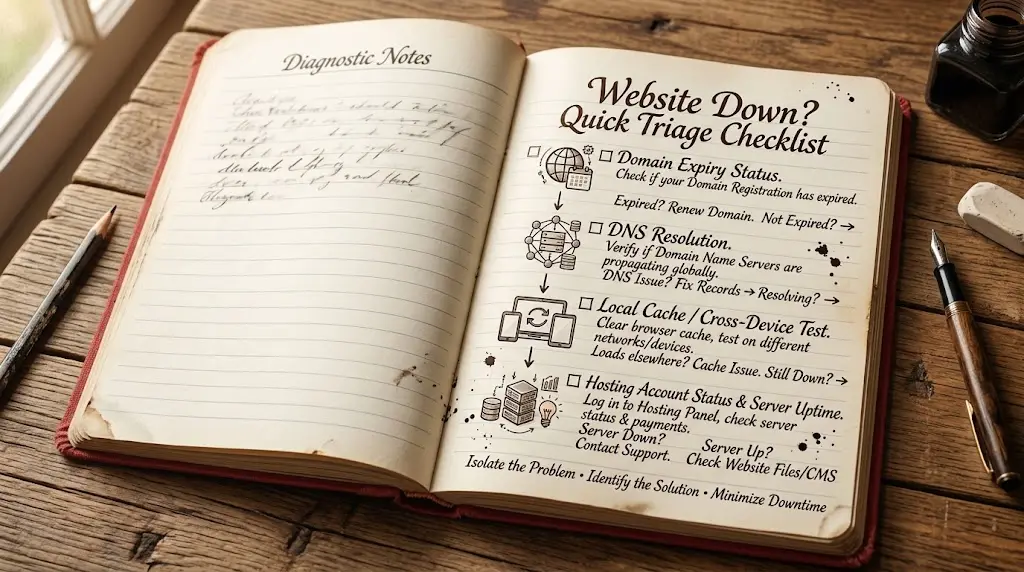 Diagnostic Notes
Website Down?
Quick Triage Checklist
Domain Expiry Status.
Check if your Domain Registration has expired.
Expired? Renew Domain. Not Expired? →
DNS Resolution.
Verify if Domain Name Servers are
propagating globally.
DNS Issue? Fix Records → Resolving? →
Local Cache / Cross-Device Test.
Clear browser cache, test on different
networks/devices.
Loads elsewhere? Cache Issue. Still Down? →
Hosting Account Status & Server Uptime.
Log in to Hosting Panel, check server
status & payments.
Server Down?
Contact Support.
Server Up?
Check Website Files/CMS
Isolate the Problem • Identify the Solution • Minimize Downtime